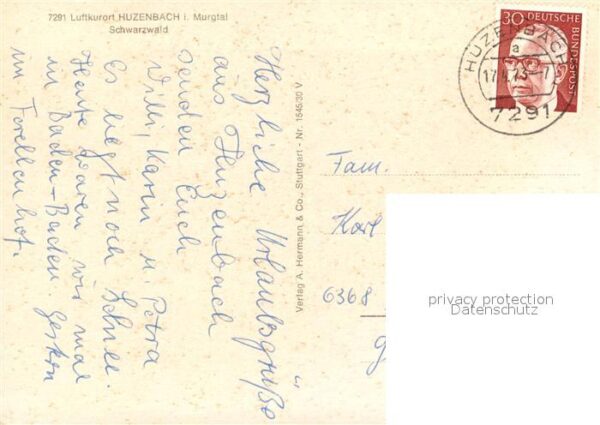 7291 Luftkurort HUZENBACH i. Murgtal
Schwarzwald
Herzliche Urlaubsgrüße
aus Huzenbach
senden Euch
Willi, Karin u. Petra
Es liegt noch Schnee.
Heute waren wir mal
in Baden-Baden. Gestern
im Forellenhof.
Verlag A. Hermann & Co., Stuttgart - Nr. 1545/30 V
30 DEUTSCHE BUNDESPOST
HUZENBACH
a
7291
Fam.
Karl
6368
privacy protection
Datenschutz